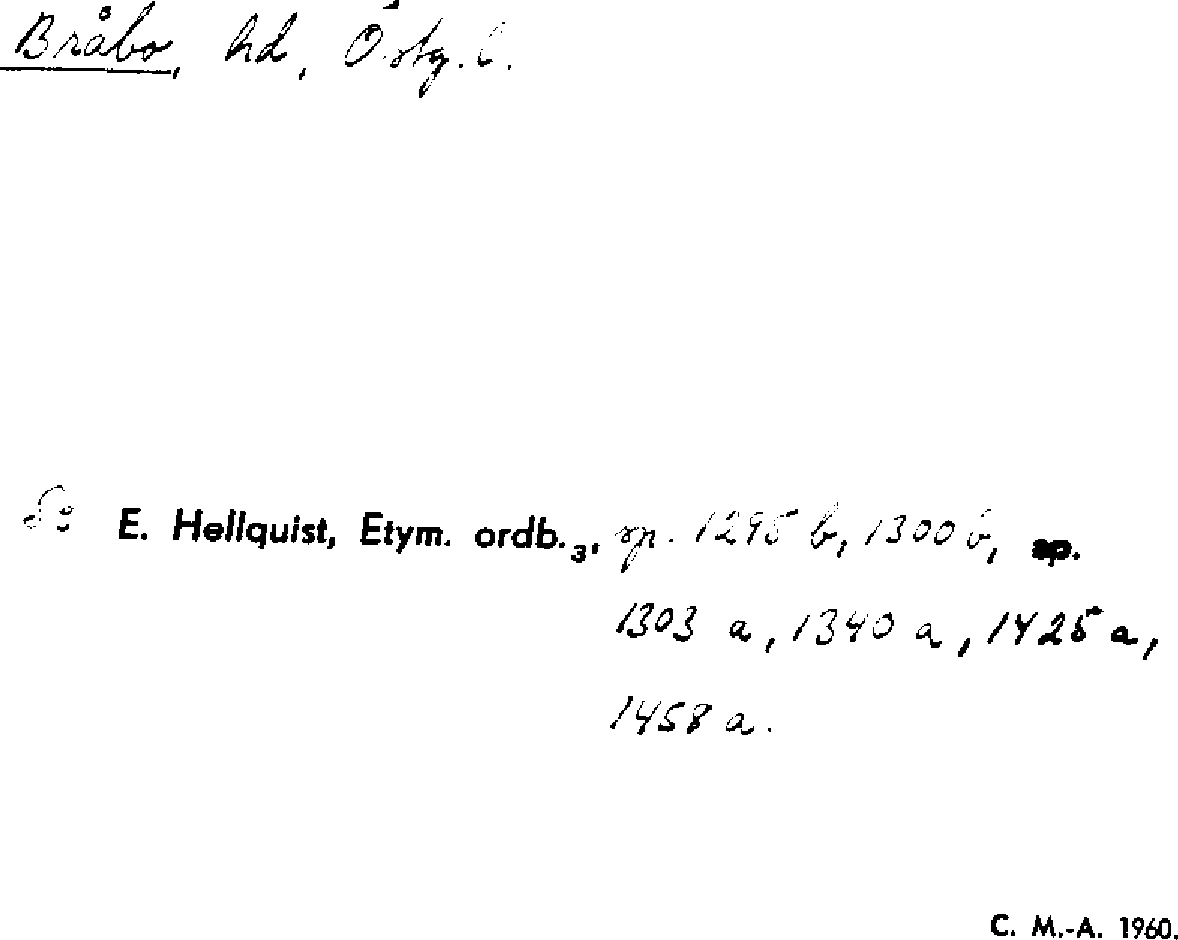 Bråbo, hd, Östg.l.
Se E. Hellquist, Etym. ordb.3, sp. 1295 b, 1300 b, sp.
1303 a, 1340 a, 1425 a,
1458 a.
C. M.-A. 1960.